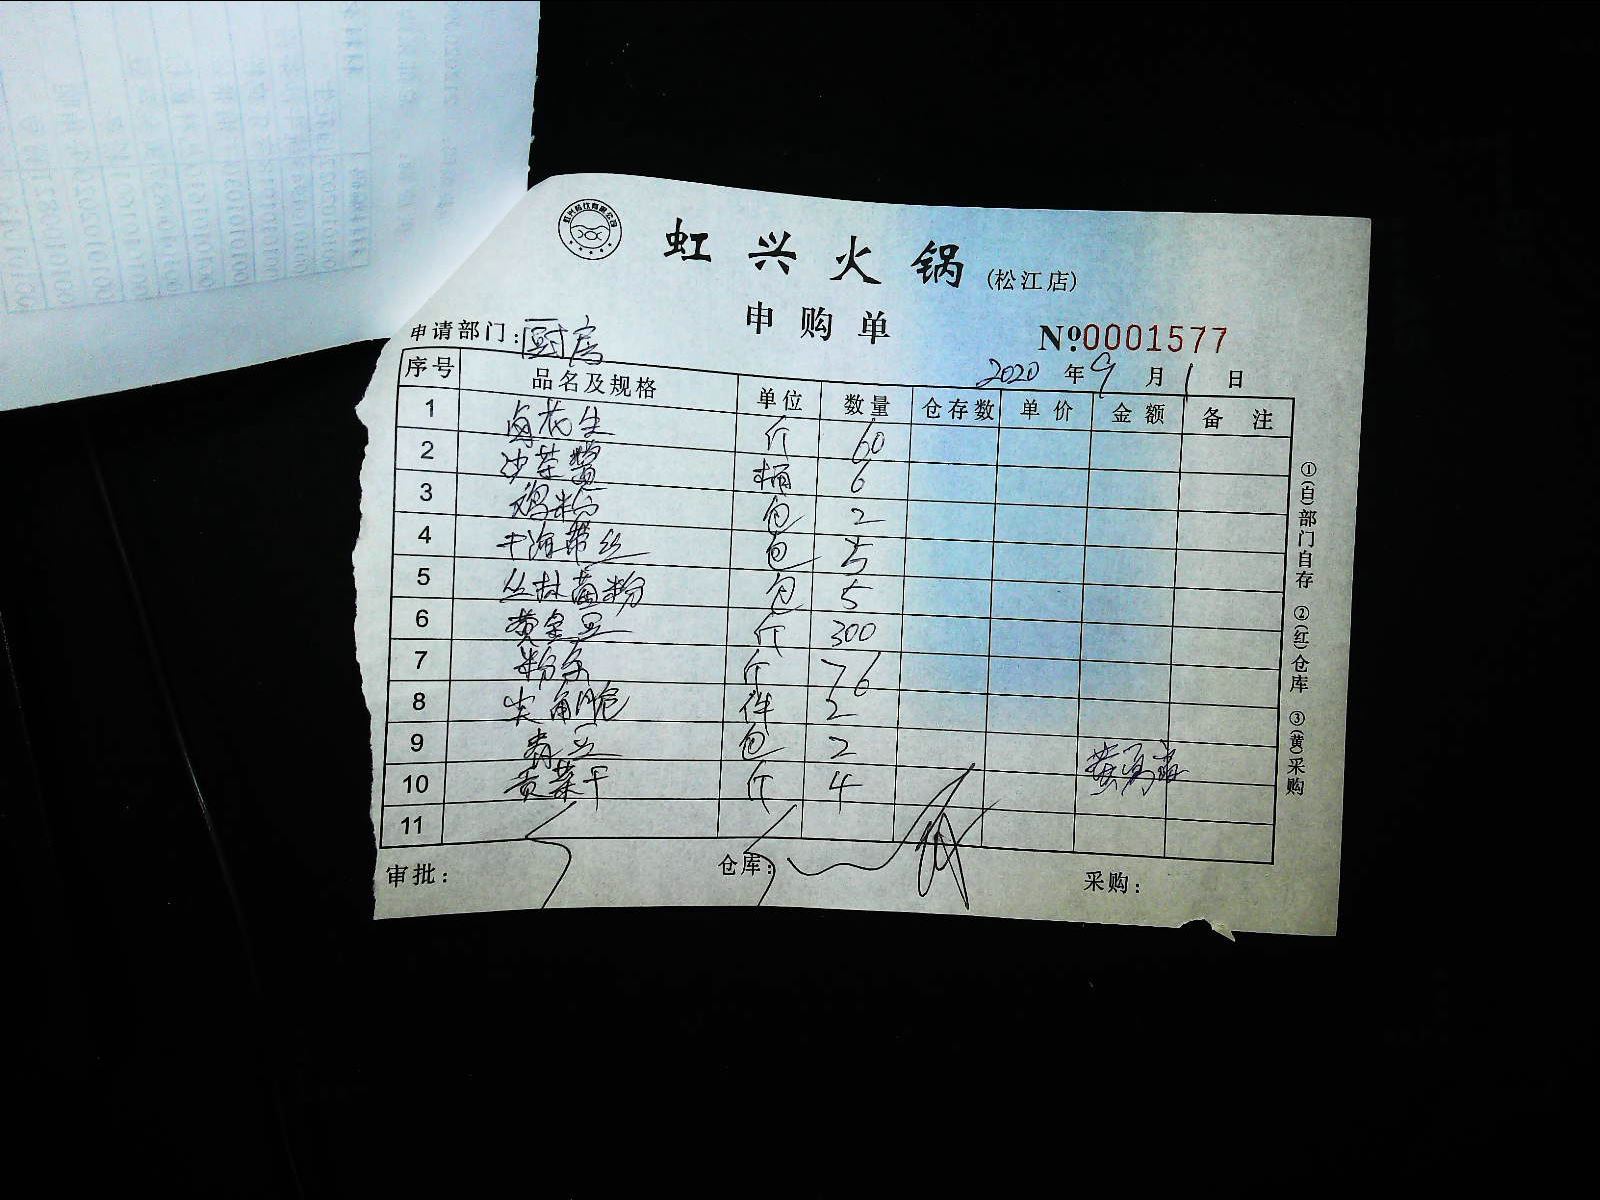 虹兴火锅(松江店)
申购单
申请部门:厨房
№0001577
2020年9月1日
序号 品名及规格 单位 数量 仓存数 单价 金额 备注
1 卤花生 斤 60
2 沙茶酱 桶 6
3 鸡粉 包 2
4 干海带丝 包 5
5 丛林菌粉 包 5
6 黄金豆 斤 300
7 粉条 斤 76
8 尖角脆 件 2
9 青豆 包 2
10 贡菜干 斤 4
11
审批: 仓库: 采购:
①(白)部门自存 ②(红)仓库 ③(黄)采购